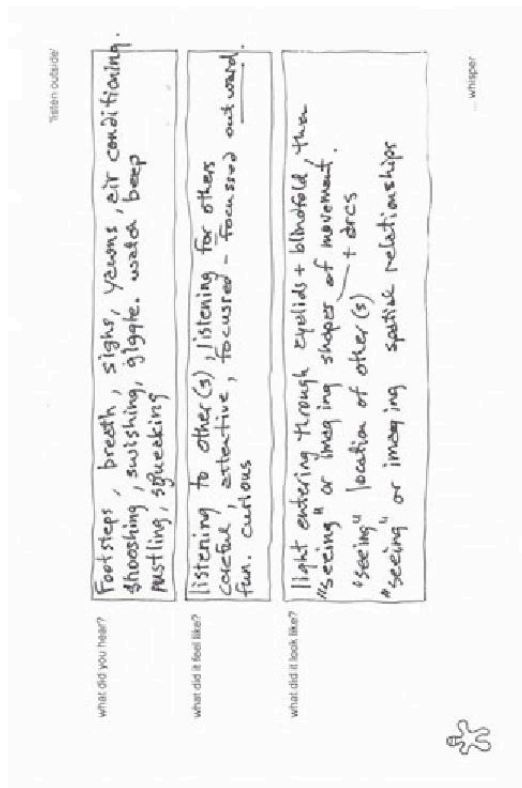 'listen outside'
what did you hear?
Footsteps, breath, sighs, yawns, air conditioning.
shooshing, swishing, giggle. watch beep
rustling, squeaking
what did it feel like?
listening to other(s), listening for others
careful, attentive, focussed - focussed outward.
fun. curious
what did it look like?
light entering through eyelids + blindfold, then
"seeing" or imaging shapes of movement.
+ arcs
"seeing" location of other(s)
"seeing" or imaging spatial relationships
... whisper